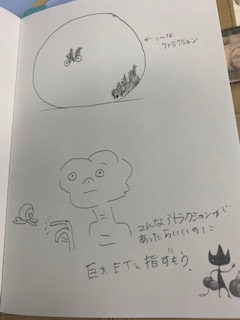 こんな
アトラクション
こんなアトラクションが
あったらいいのに
巨大ETと指ずもう